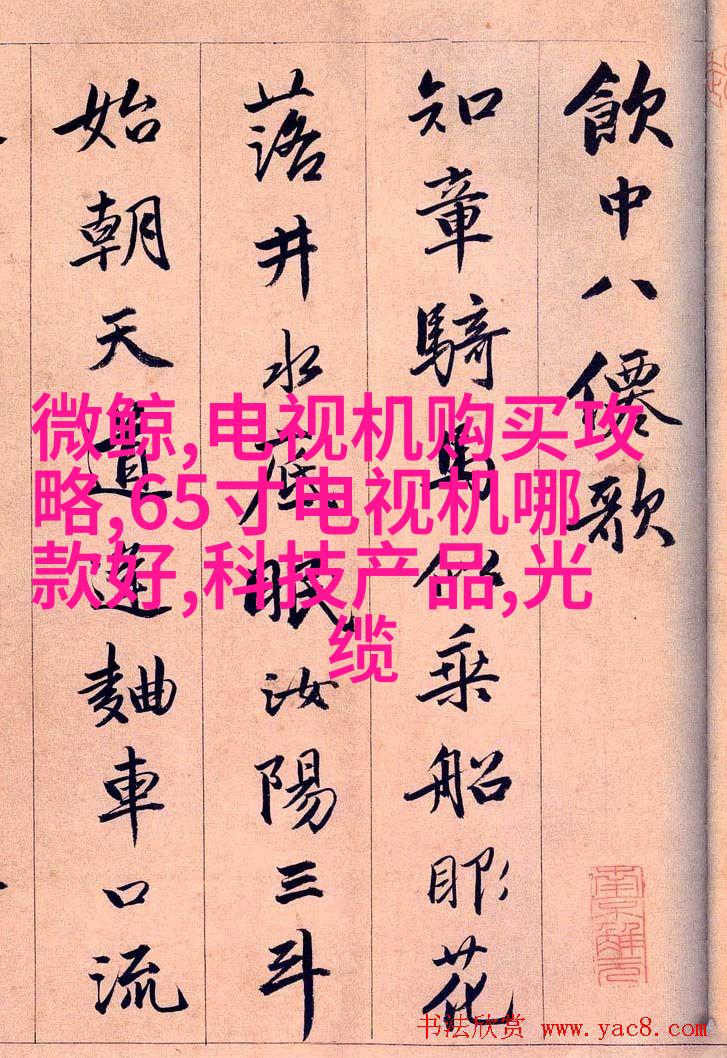 飲中八僊歌
知章騎馬似乘船眼花
落井水底眠汝陽三斗
始朝天道逢麯車口流
微鲸,电视机购买攻
略,65寸电视机哪
款好,科技产品,光
缆
南京解元
书法欣赏 www.yac8.com